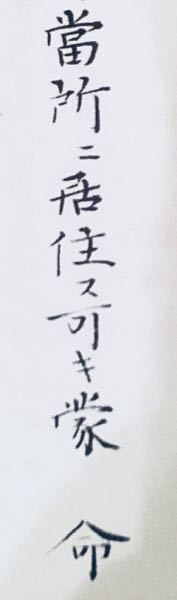 當所ニ居住ス可キ蒙　命